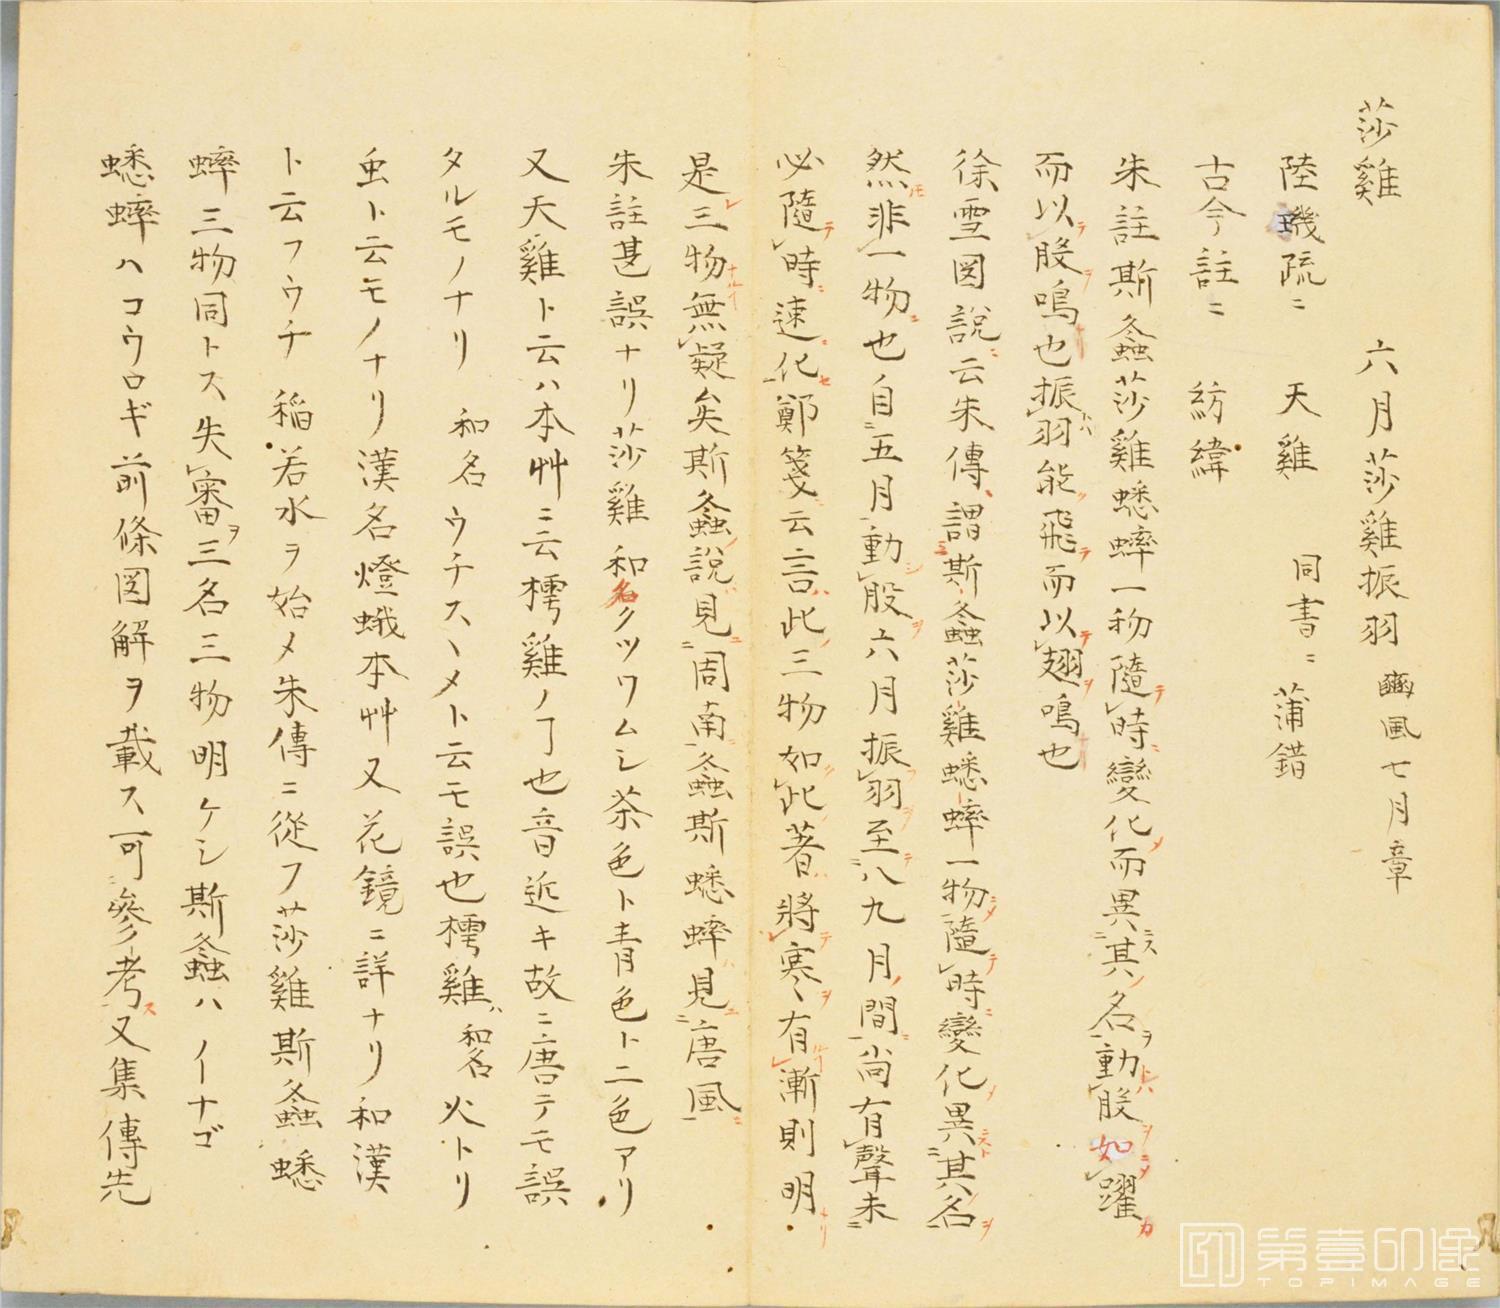 莎雞　六月莎雞振羽 豳風七月章
陸璣疏ニ　天雞　同書ニ蒲錯
古今註ニ　紡緯
朱註斯螽莎雞蟋蟀一物隨時變化而異其名動股如躍
而以股鳴也振羽能飛而以翅鳴也
徐雪図說云朱傳謂斯螽莎雞蟋蟀一物隨時變化異其名
然非一物也自五月動股六月振羽至八九月間尚有聲未
必隨時速化鄭箋云言此三物如此著將寒有漸則明
是三物無疑矣斯螽說見周南螽斯蟋蟀見唐風
朱註甚誤ナリ莎雞和名クツワムシ茶色ト青色ト二色アリ
又天雞ト云ハ本艸ニ云樗雞ノ㏄也音近キ故ニ唐テモ誤
タルモノナリ　和名ウチスヽメト云モ誤也樗雞ハ和名火トリ
虫ト云モノナリ漢名燈蛾本艸又花鏡ニ詳ナリ和漢
ト云フウチ稲若水ヲ始メ朱傳ニ從フ莎雞斯螽蟋
蟀三物同トス失審ヲ三名三物明ケシ斯螽ハイナゴ
蟋蟀ハコウロギ前條図解ヲ載ス可參考ス又集傳先
第壹印像
TOPIMAGE